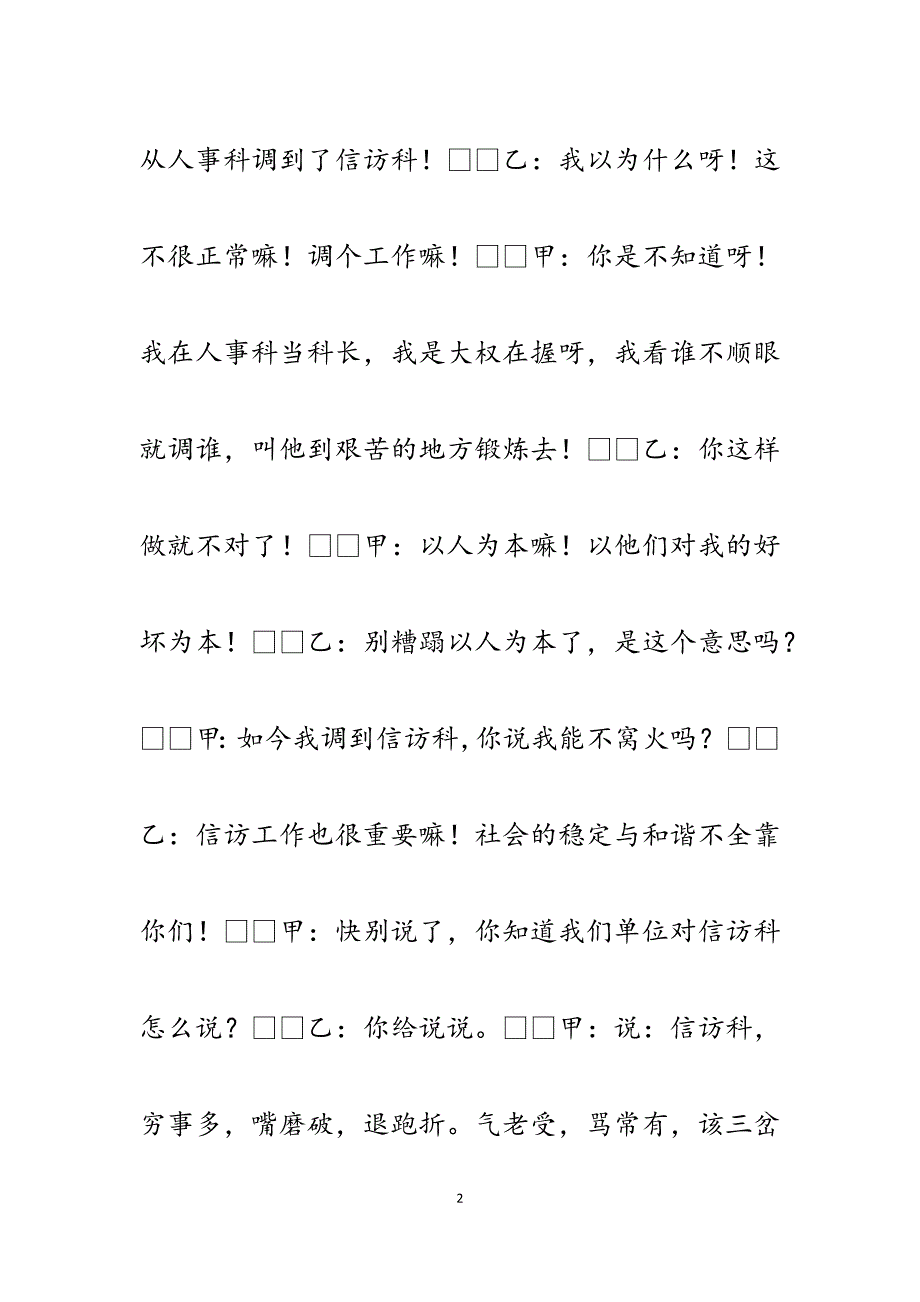 从人事科调到了信访科！□□乙：我以为什么呀！这
不很正常嘛！调个工作嘛！□□甲：你是不知道呀！
我在人事科当科长，我是大权在握呀，我看谁不顺眼
就调谁，叫他到艰苦的地方锻炼去！□□乙：你这样
做就不对了！□□甲：以人为本嘛！以他们对我的好
坏为本！□□乙：别糟蹋以人为本了，是这个意思吗？
□□甲：如今我调到信访科，你说我能不窝火吗？□□
乙：信访工作也很重要嘛！社会的稳定与和谐不全靠
你们！□□甲：快别说了，你知道我们单位对信访科
怎么说？□□乙：你给说说。□□甲：说：信访科，
穷事多，嘴磨破，退跑折。气老受，骂常有，该三岔
2